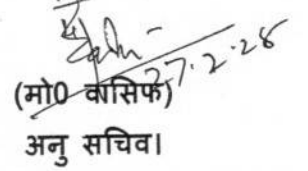 27.2.28
(मो0 वासिफ)
अनु सचिव।